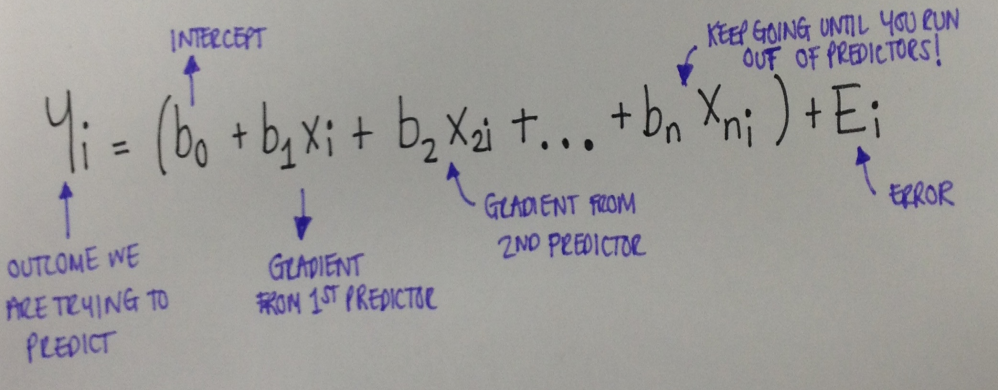 INTERCEPT
KEEP GOING UNTIL YOU RUN
OUT OF PREDICTORS!
yi = (b0 + b1xi + b2x2i + ... + bnxni) + Ei
OUTCOME WE
ARE TRYING TO
PREDICT
GRADIENT
FROM 1ST PREDICTOR
GRADIENT FROM
2ND PREDICTOR
ERROR